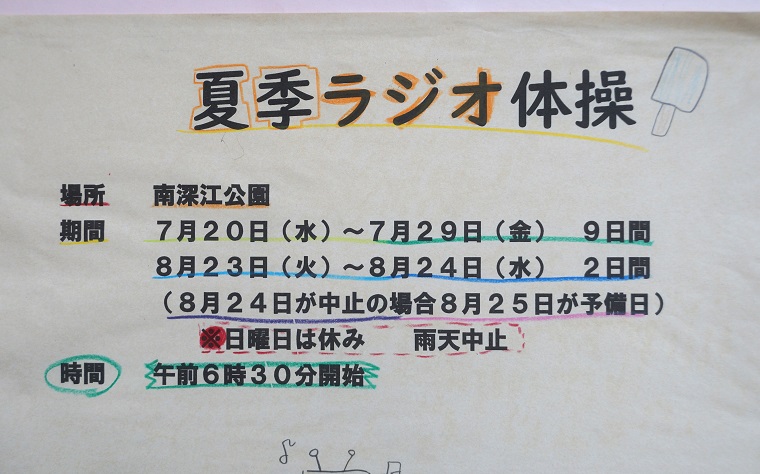 夏季ラジオ体操
場所　南深江公園
期間　７月２０日（水）～７月２９日（金）　９日間
８月２３日（火）～８月２４日（水）　２日間
（８月２４日が中止の場合８月２５日が予備日）
※日曜日は休み　　雨天中止
時間　午前６時３０分開始